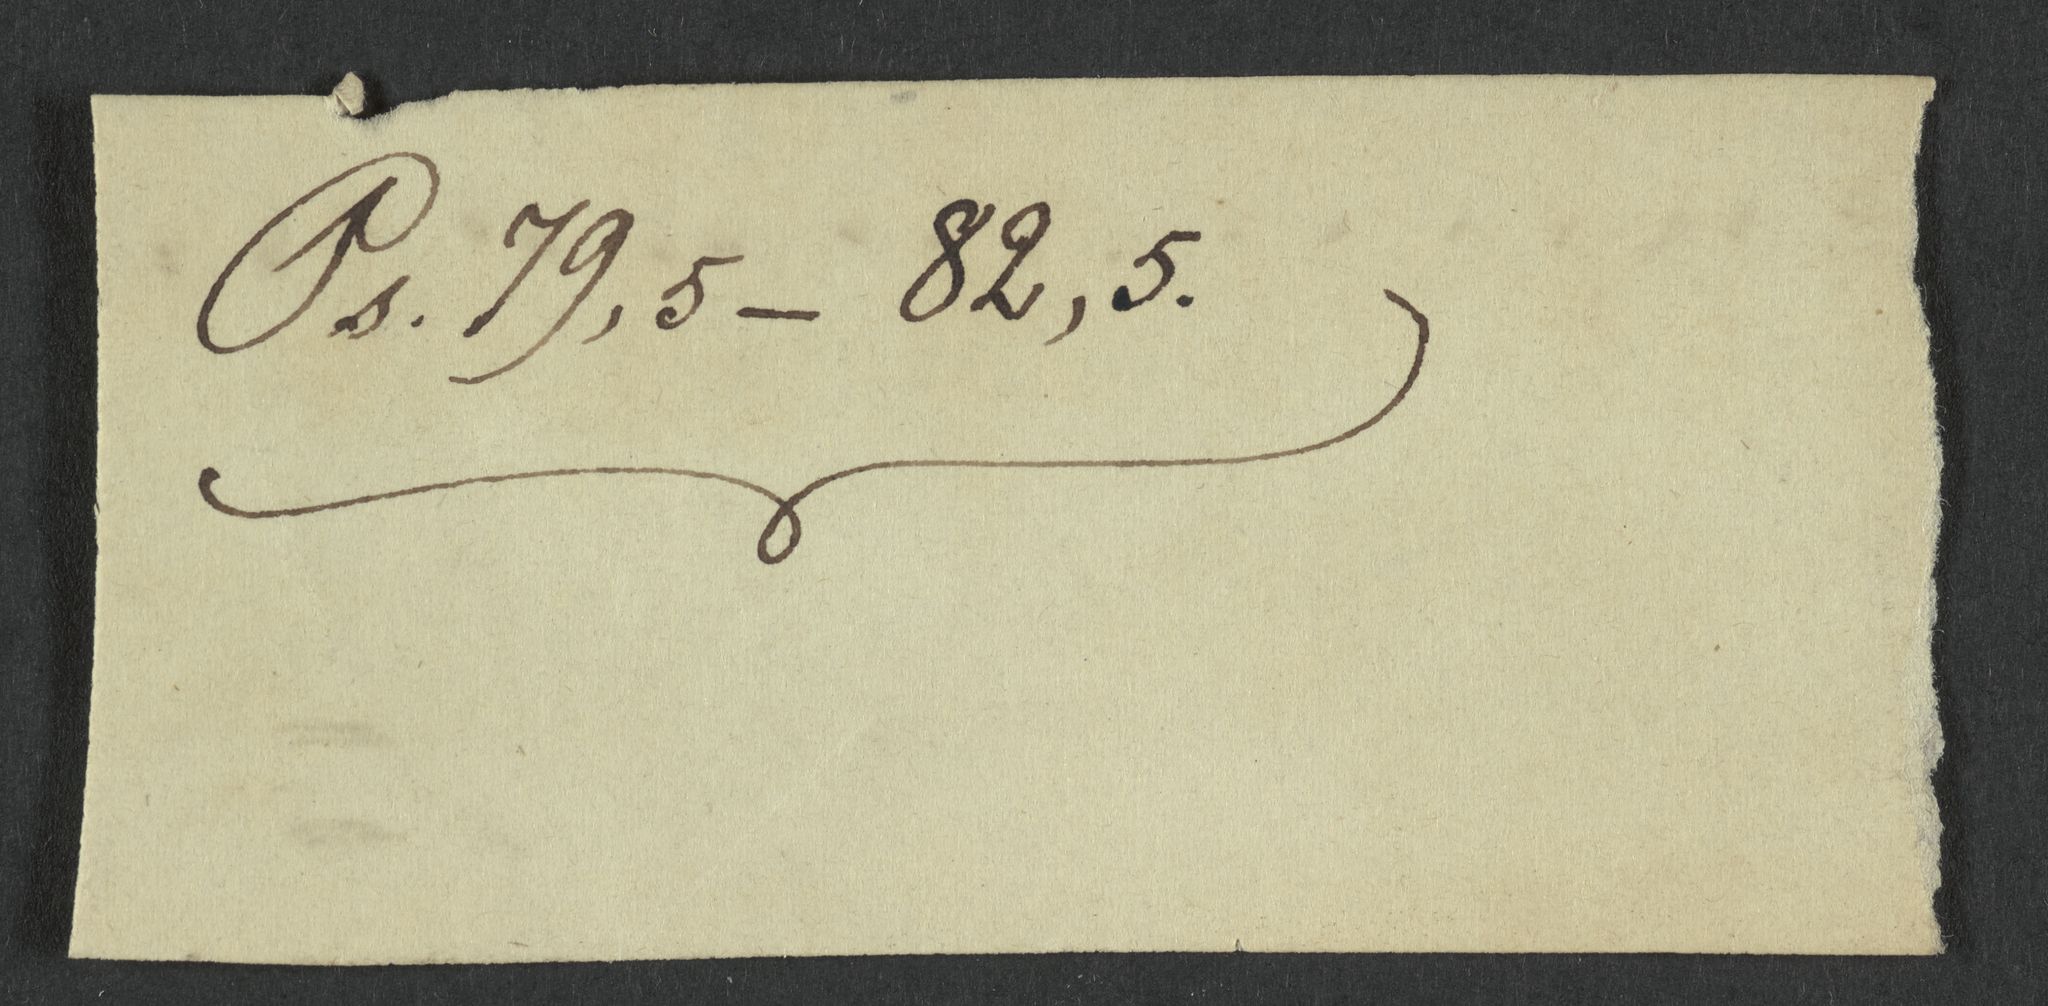 Ps. 79, 5 — 82, 5.